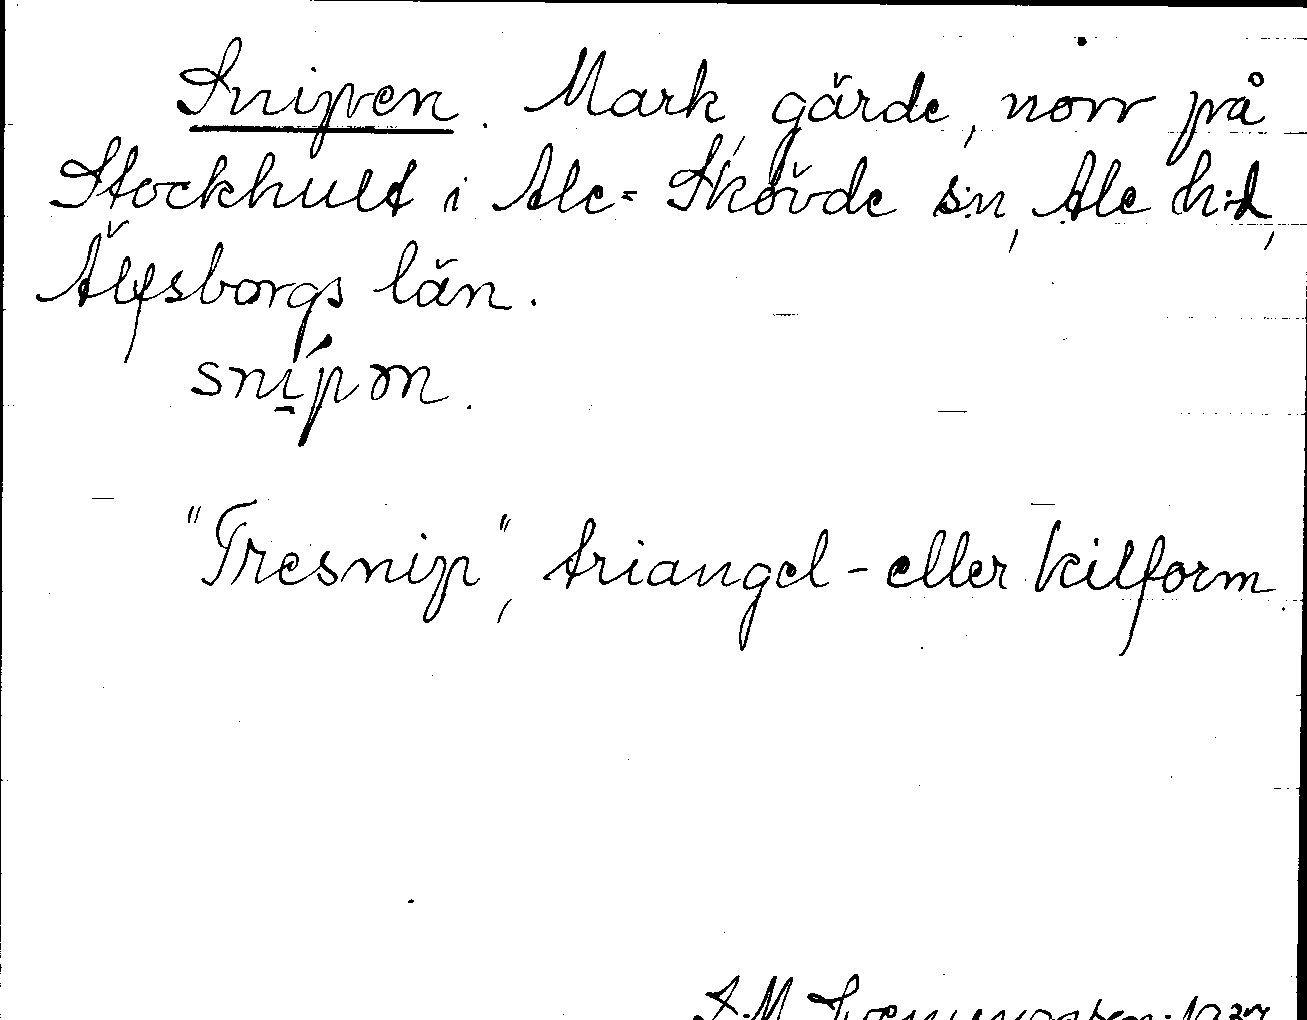 Snipen. Mark, gärde, norr på
Stockhult i Ale-Skövde s:n, Ale h:d,
Älfsborgs län.
snípən.
"Tresnip", triangel- eller kilform.